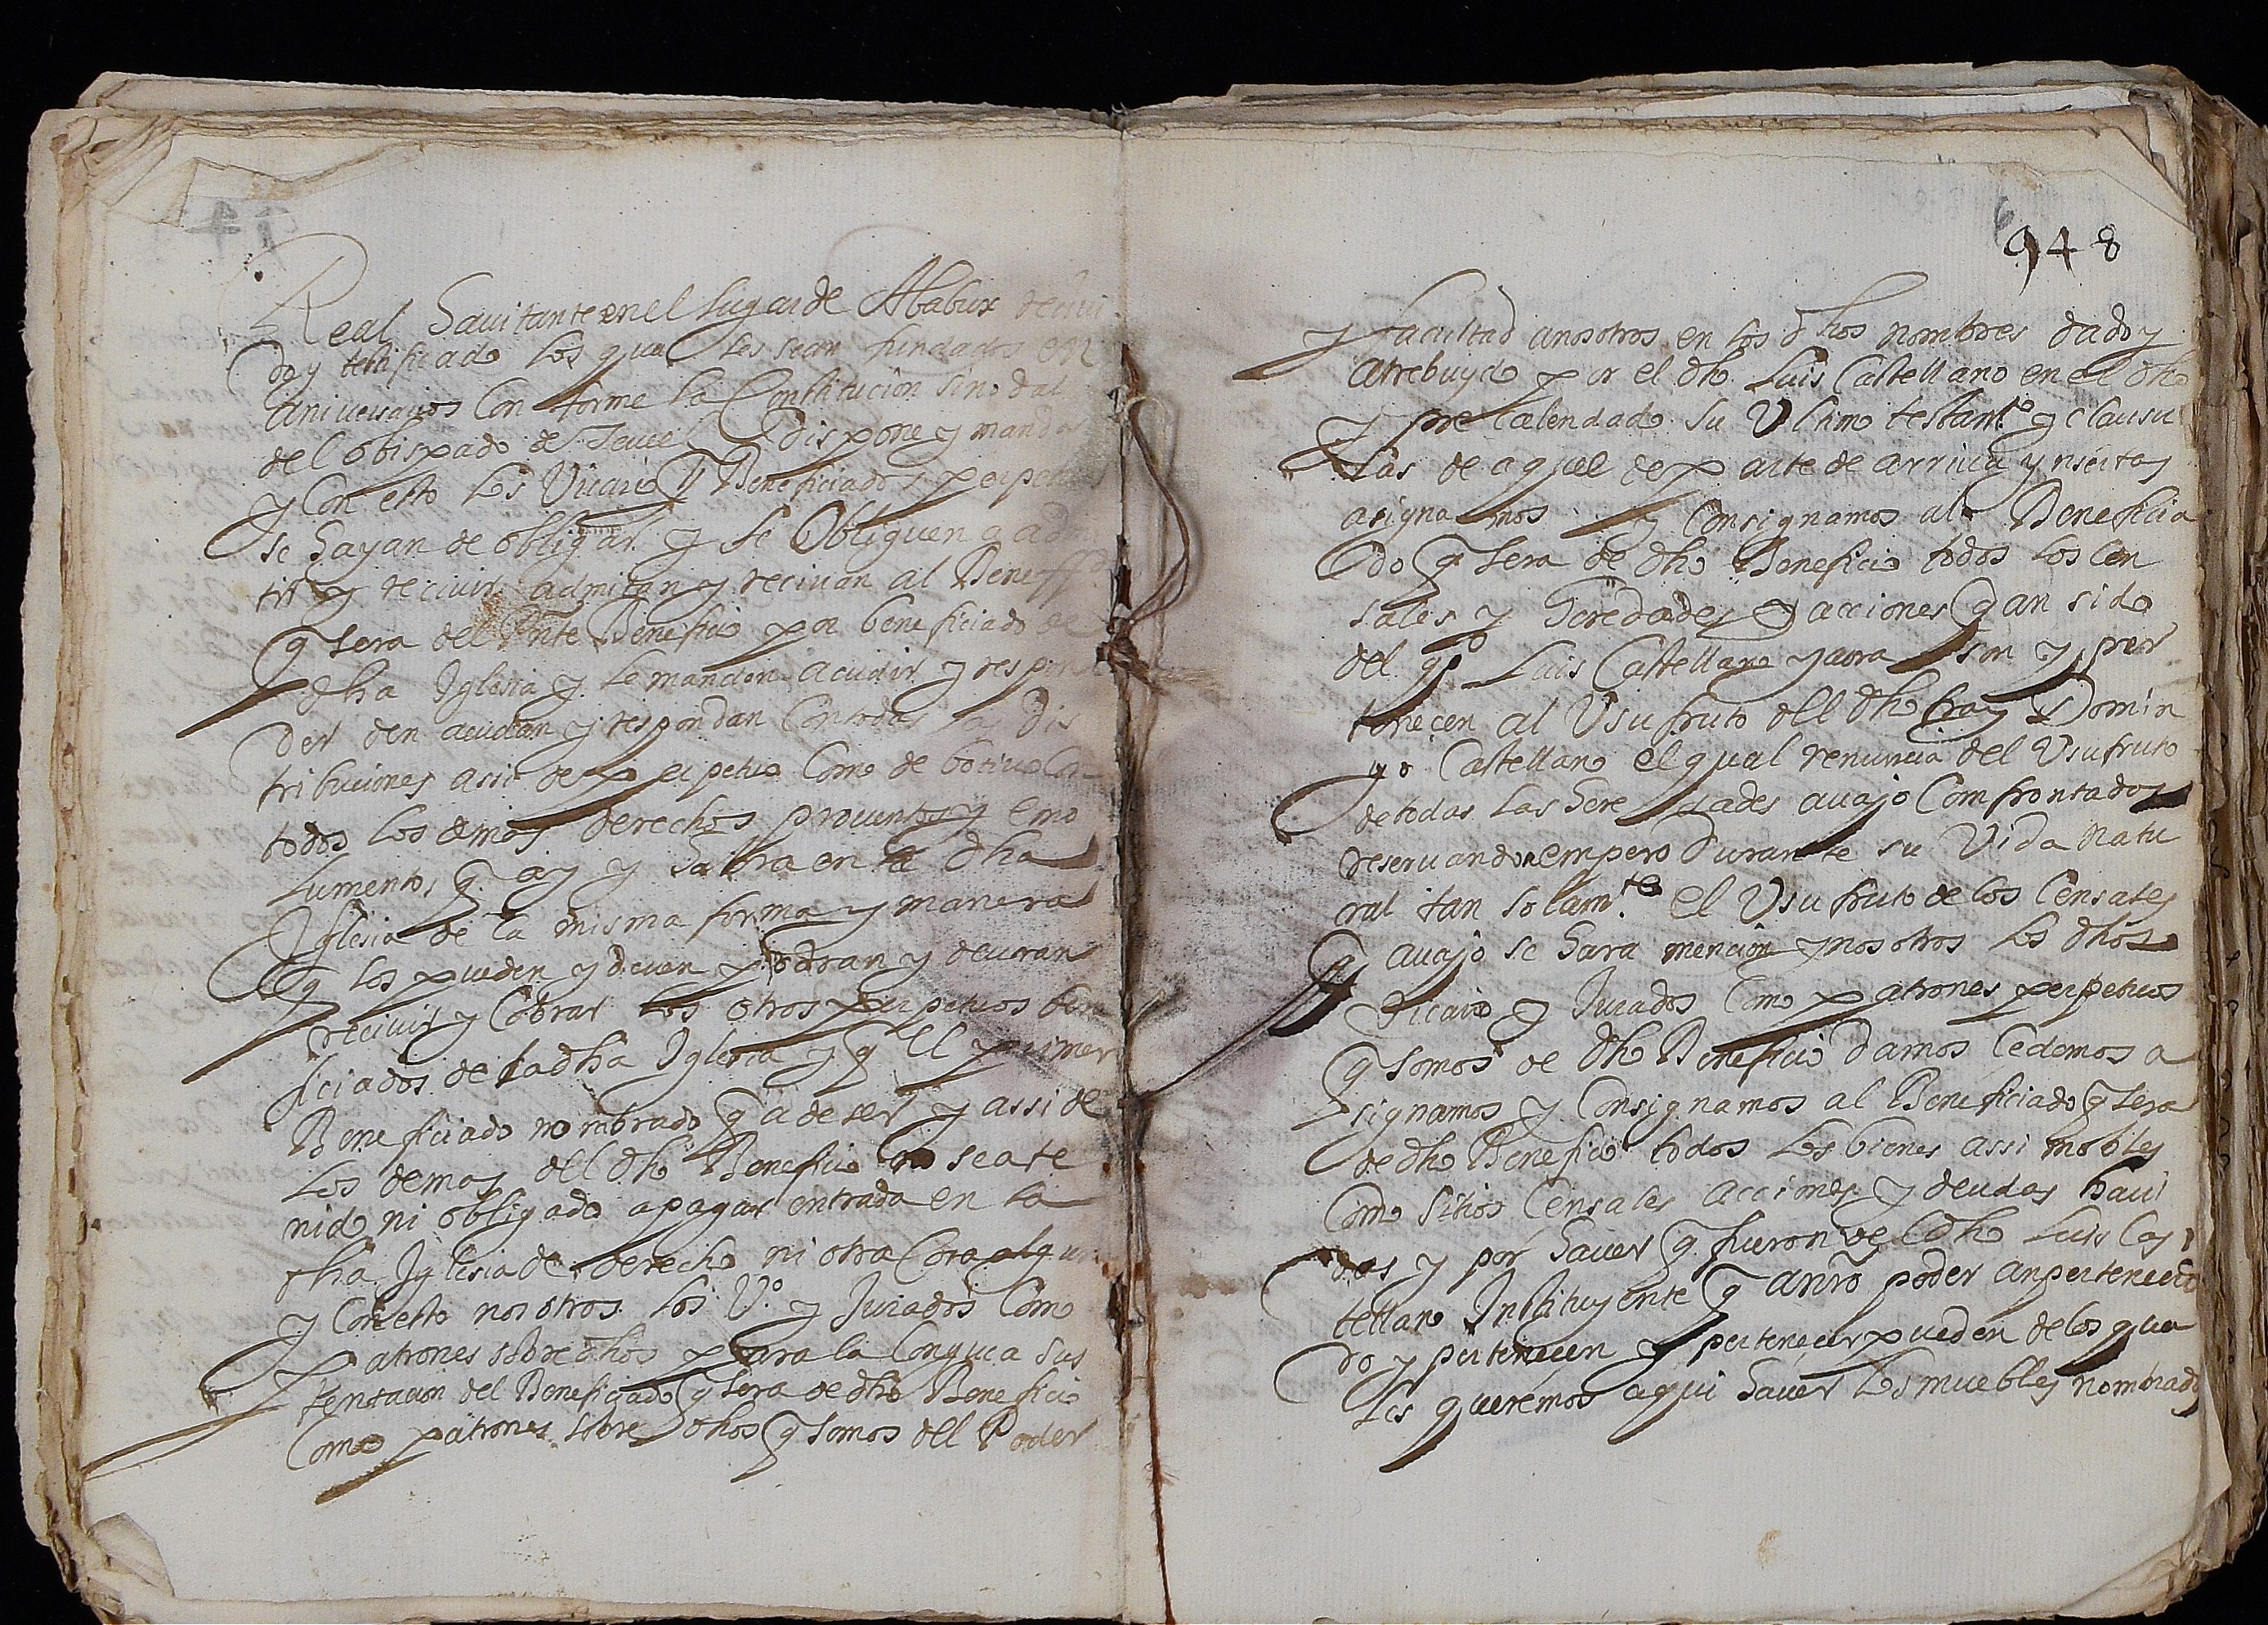 Real Hauitante en el lugar de Ababux
do y testificado los quales sean fundados en
aniversarios Conforme la Constitucion sinodal
del obispado de Teruel dispone y manda
y Con esto los Vicario y Beneficiados perpetuos
se hayan de obligar y se Obliguen a ad
tir y reciuir admitan y reciuan al Beneff.do
q sera del Pnte Beneficio por beneficiado de
dha Iglesia y le manden acudir y respon
der den acudan y respondan Con todas las dis
tribuciones assi de perpetuo Como de botiuo Con
todos los demas derechos prouentos y emo
lumentos q ay y haura en la dha
Iglesia de la misma forma y manera
q los pueden y deuen podran y deueran
reciuir y Cobrar los otros perpetuos bene
ficiados de la dha Iglesia y q el primer
Beneficiado nombrado q a de ser y assi de
los demas del dho Beneficio no sea te
nido ni obligado a pagar entrada en la
dha Iglesia de derecho ni otra Cosa algun
y Con esto nosotros los V.o y Jurados Como
Patrones sobre dhos para la Congrua sus
tentacion del Beneficiado q sera de dho Beneficio
Como patrones sobre dhos q somos del Poder
948
y facultad a nosotros en los dhos nombres dado y
atrebuydo por el dho Luis Castellano en el dho
y pre calendado su Ultimo testam.to y clausu
las de aquel de parte de arriua ynsertas
asignamos y Consignamos al Beneficia
do q sera de dho Beneficio todos los Cen
sales y heredades y acciones q an sido
del q.o Luis Castellano y aora son y per
tenecen al Usufruto del dho fray Domin
go Castellano el qual renuncia del Usufruto
de todas las heredades auajo Comfrontados
reseruandose empero Durante su Vida natu
ral tan solam.te el Usufruto de los Censales
q auajo se hara mencion y nosotros los dhos
Vicario y Jurados Como patrones perpetuos
q somos de dho Beneficio damos Cedemos a
signamos y Consignamos al Beneficiado q sera
de dho Beneficio todos los bienes assi mobles
Como sitios Censales acciones y deudas haui
das y por hauer q fueron de el dho Luis Cas
tellano Instituyente q a nro poder an perteneci
do y pertenecen y pertenecer pueden de los qua
les queremos aqui hauer los muebles nombrados